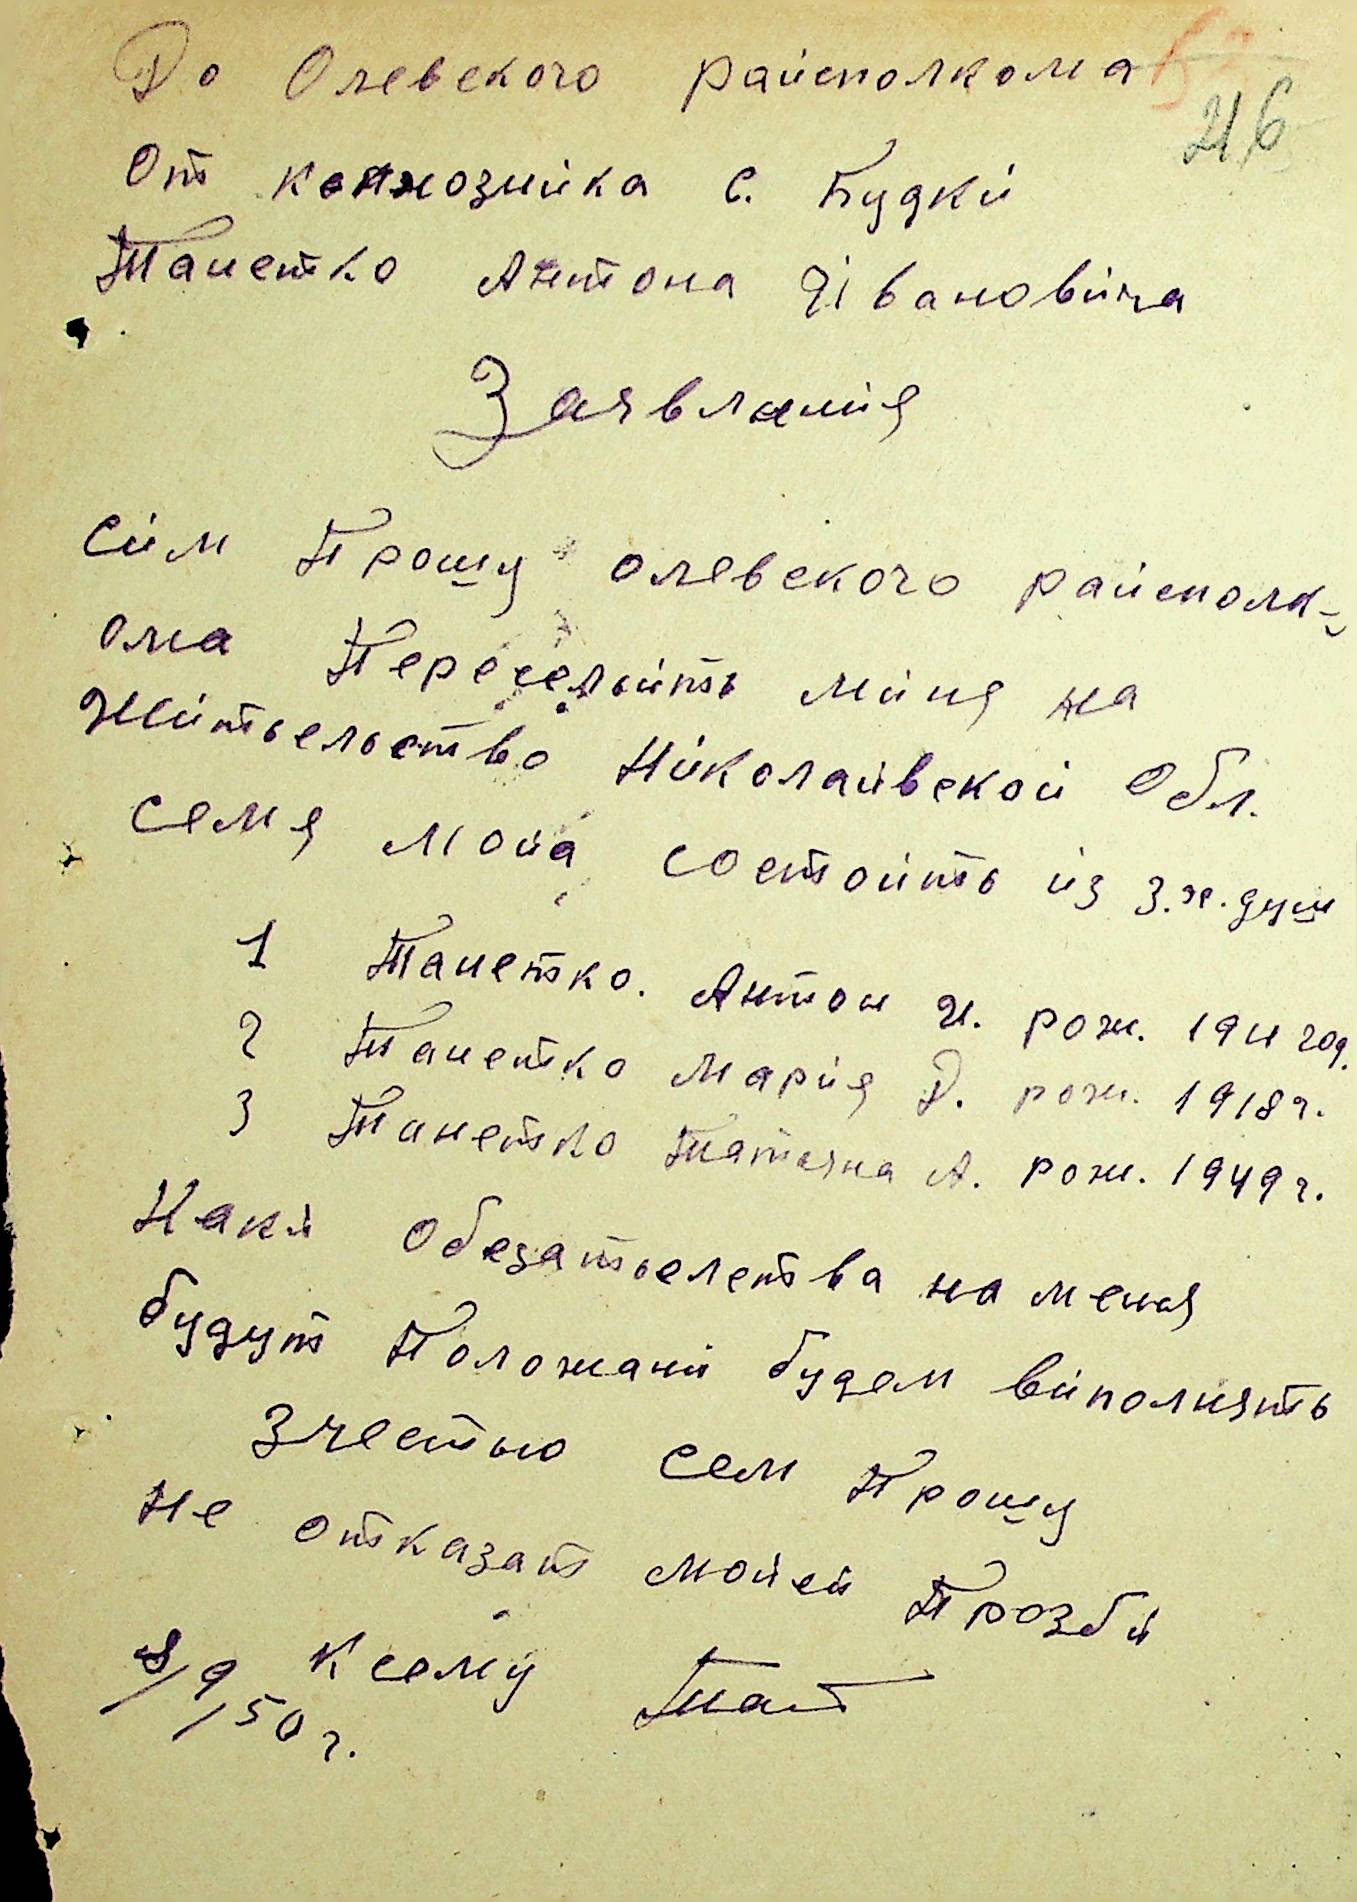 До Олевского райсполкома
216
От колхозніка с. Будкі
Танетко Антона Івановіча
Заявлянія
Сім Прошу олевского райсполк-
ома Переселыіть міня на
Жітьельство Ніколаївской Обл.
семя моіа состоіть із 3.х. душ
1 Танетко. Антон И. рож. 1911 год.
2 Танетко Марія Д. рож. 1918 г.
3 Танетко Татьяна А. рож. 1949 г.
Какі Обезатьелства на меня
будут Положані будем віполнять
Зчестью сем Прошу
Не отказат моіей Прозбі
Ксему
8/9/50 г.